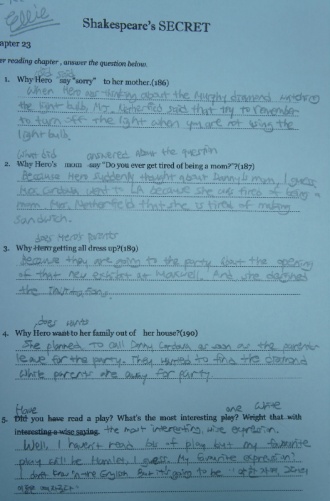 Ellie
Shakespeare's SECRET
apter 23
er reading chapter , answer the question below.
did said
1. Why Hero say "sorry" to her mother.(186)
When Hero was thinking about the Murphy diamond
the light bulb, Mrs. Netherfield said that try to remember
to turn off the light when you are not using the
light bulb.
What did answered about the question
2. Why Hero's mom say "Do you ever get tired of being a mom?"?(187)
Because Hero suddenly thought about Danny's mom, I guess
Mrs. Cordova went to LA because she was tired of being a
mom. Mrs. Netherfield that she is tired of making
sandwich.
does Hero's parents
3. Why Hero getting all dressed up?(189)
Because they are going to the party for the opening
of that new exhibit at Maxwell. And she designed
the invitations.
does wanted
4. Why Hero want to her family out of her house?(190)
She planned to call Danny Cordova as soon as the parents
leave for the party. They wanted to find the diamond
while parents are away for party.
Have one Write
5. Did you have read a play? What's the most interesting play? Wright that with
interesting a wise saying. the most interesting, wise expression.
Well, I haven't read lots of play but my favourite
play will be Hamlet, I guess. My favourite expression?
I don't know in the English. But it's going to be "